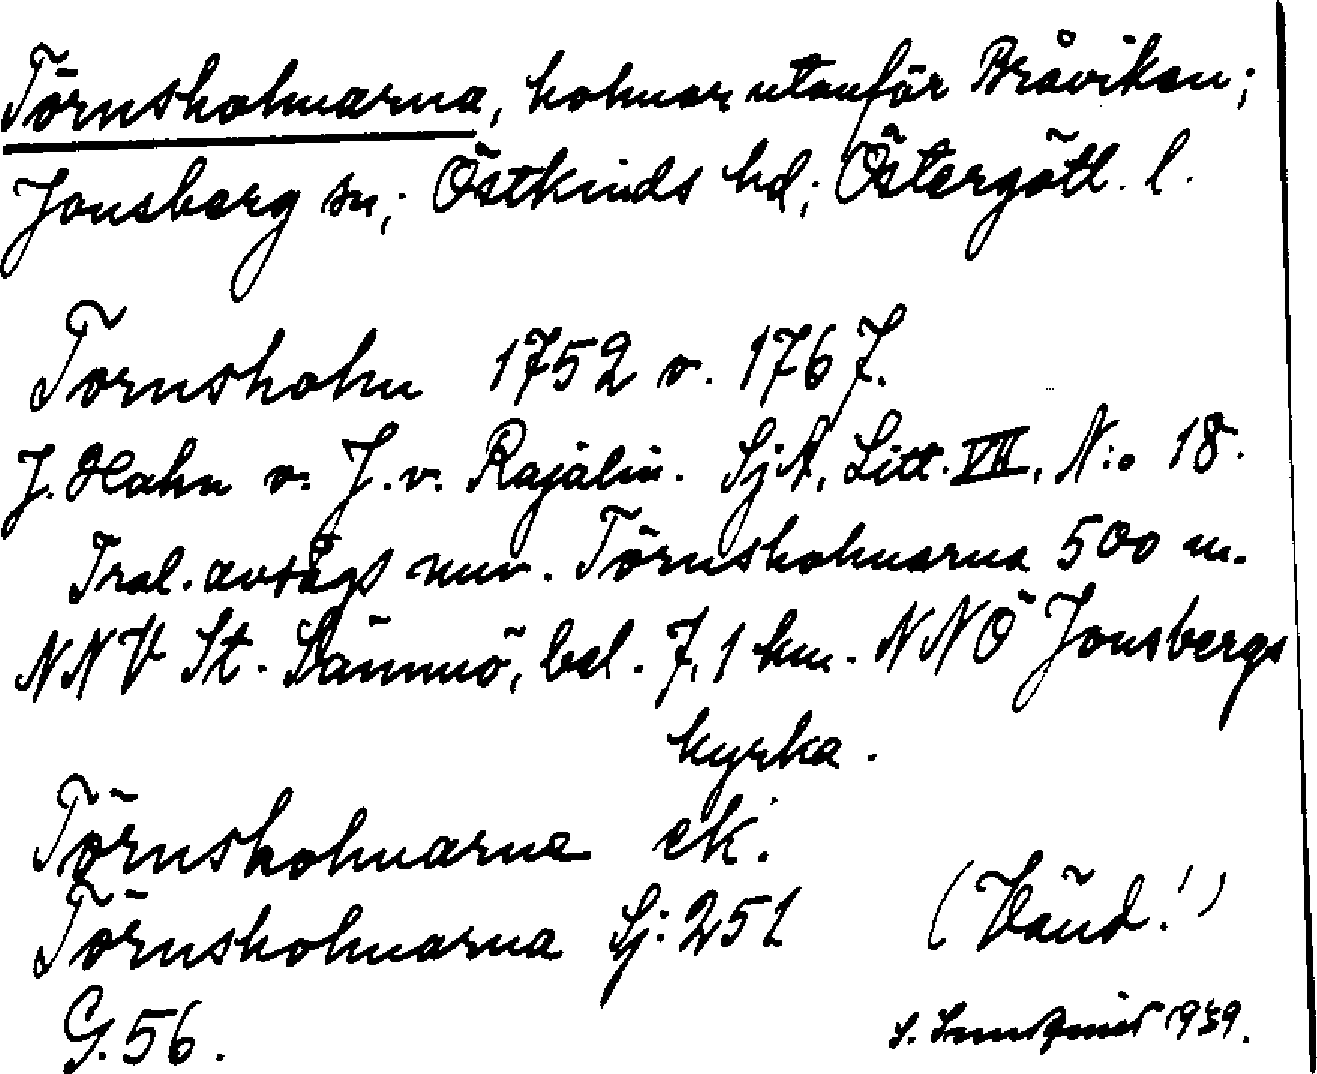 Törnsholmarna, holmar utanför Bråviken;
Jonsberg sn; Östkinds hd; Östergötl. l.
Tornsholm 1752 o. 1767.
J. Hahn o. J. v. Rajalin. SjA, Litt. VIII, N:o 18.
Trol. avsågs nuv. Törnsholmarna 500 m.
NNV St. Lämmö, bel. 7,1 km. NNÖ Jonsbergs
kyrka.
Törnsholmarne ek.
Törnsholmarna Sj: 251 (Vänd!)
G. 56. S. 1939.